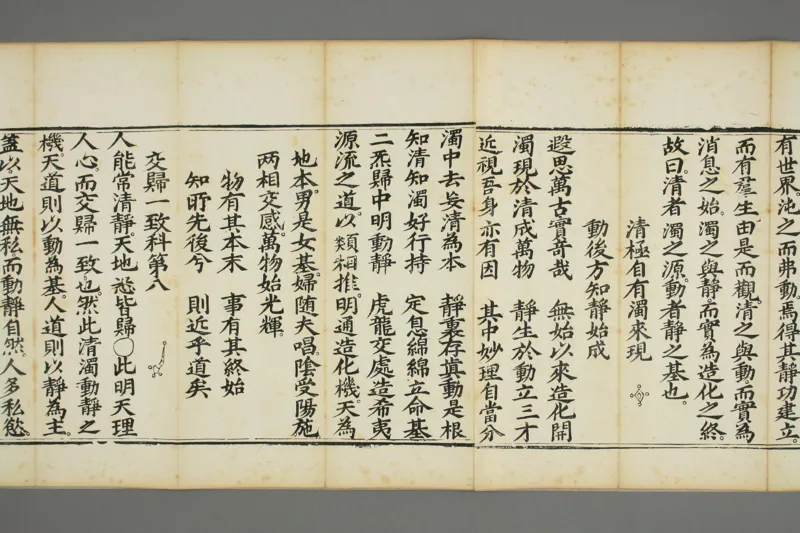 有世界沌之而弗動焉得其靜功建立。
而有羣生由是而觀清之與動。而實為
消息之始。濁之與靜而實為造化之終。
故曰。清者濁之源。動者靜之基也。
清極自有濁來現
動後方知靜始成
遐思萬古實竒哉　無始以來造化開
濁現於清成萬物　靜生於動立三才
近視吾身亦有因　其中妙理自當分
濁中去妄清為本　靜裏存真動是根
知清知濁好行持　定息綿綿立命基
二炁歸中明動靜　虎龍交處造希夷
源流之道。以類稱推。明通造化機。天為
地本。男是女基。婦随夫唱。陰受陽施。
两相交感。萬物始光輝。
物有其本末　事有其終始
知所先後兮　則近乎道矣
交歸一致科第八
人能常清靜。天地悉皆歸〇此明天理
人心。而交歸一致也。然此清濁動靜之
機。天道則以動為基。人道則以靜為主。
蓋以天地無私而動靜自然。人多私慾